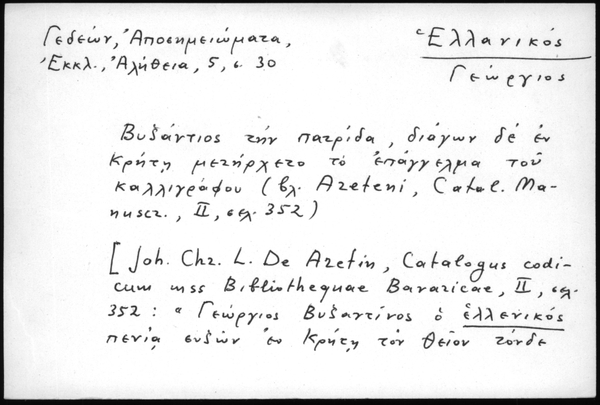 Γεδεών, Ἀποσημειώματα,
Ἐκκλ., Ἀλήθεια, 5, σ. 30
Ἑλλανικός
Γεώργιος
Βυζάντιος τὴν πατρίδα, διάγων δέ ἐν
Κρήτῃ μετήρχετο τό ἐπάγγελμα τοῦ
καλλιγράφου (βλ. Areteni, Catal. Ma-
nuscr., II, σελ. 352)
[Joh. Chr. L. De Aretin, Catalogus codi-
cum mss Bibliothequae Bavaricae, II, σελ.
352: « Γεώργιος Βυζαντίνος ὁ ἐλλενικός
πενίᾳ συζών ἐν Κρήτῃ τόν θεῖον τόνδε